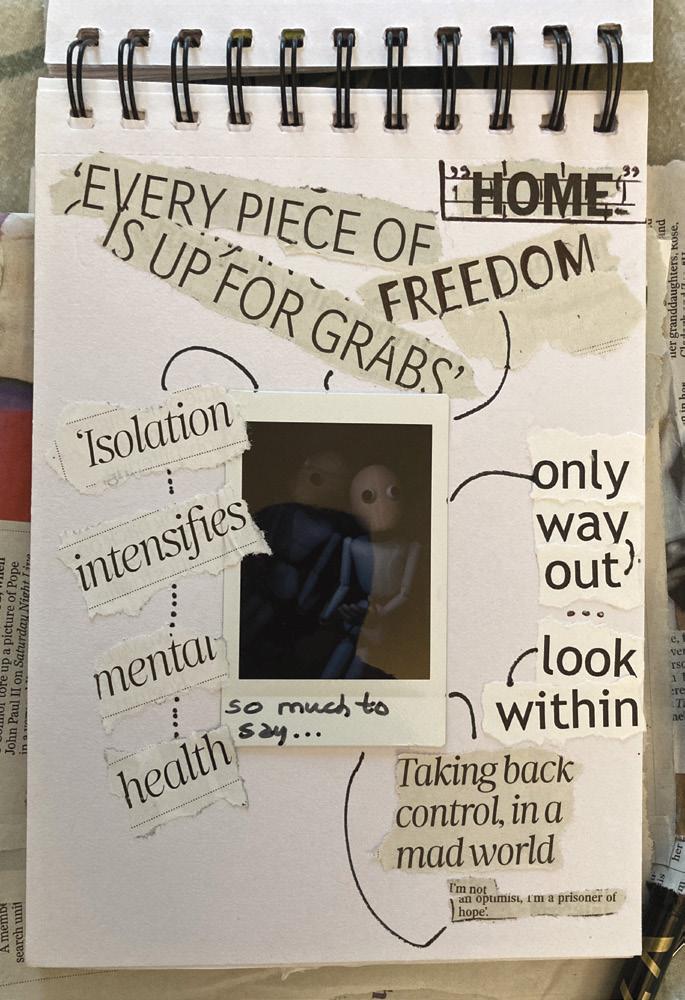 "HOME"
'EVERY PIECE OF
FREEDOM
IS UP FOR GRABS'
'Isolation
intensifies
mental
health
only
way
out'
look
within
so much to
say...
Taking back
control, in a
mad world
I'm not
an optimist, I'm a prisoner of
hope'.
John Paul II on Saturday Night Live
tore up a picture of Pope
A memb
search unit
her granddaughters. Rose,